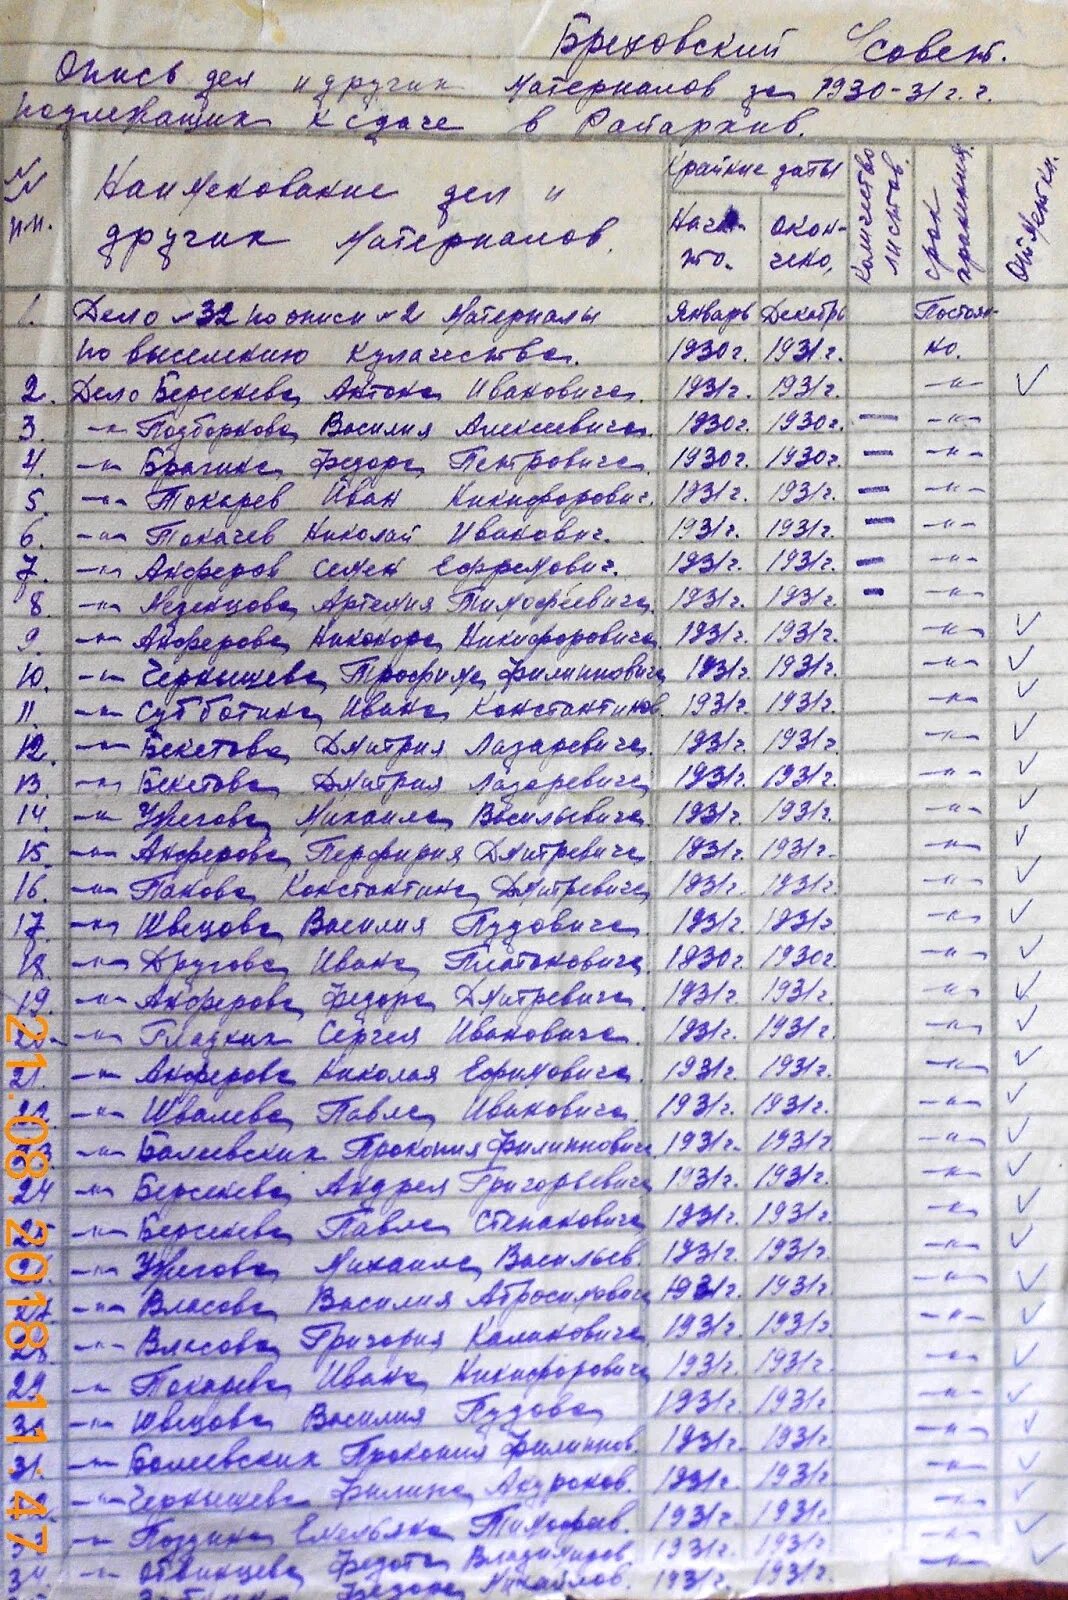 Бреховский с/совет.
Опись дел и других материалов за 1930-31 г.г.
подлежащих к сдаче в Райархив.
№№ п.п. Наименование дел и других материалов. Крайние даты Начато. окончено, Количество листов. срок хранения. отметки.
1. Дело №32 по описи №2 Материалы Январь Декабрь Постоян-
по выселению кулачества. 1930г. 1931г. но.
2. Дело Берсенева Антона Ивановича. 1931г. 1931г. -"- ✓
3. -"- Подборнова Василия Алексеевича. 1930г. 1930г. — -"-
4. -"- Брагина Федора Петровича. 1930г. 1930г. — -"-
5. -"- Токарев Иван Никифорович. 1931г. 1931г. — -"-
6. -"- Николай Иванович. 1931г. 1931г. — -"-
7. -"- Анферов Семен Ефремович. 1931г. 1931г. — -"-
8. -"- Артемия Тимофеевича. 1931г. 1931г. — -"-
9. -"- Анферова Никонора Никифоровича 1931г. 1931г. -"- ✓
10. -"- Чернышева Трофима Филипповича 1931г. 1931г. -"- ✓
11. -"- Субботина Ивана Константинов. 1931г. 1931г. -"- ✓
12. -"- Бекетова Дмитрия Лазаревича. 1931г. 1931г. -"- ✓
13. -"- Бекетова Дмитрия Лазаревича 1931г. 1931г. -"- ✓
14. -"- Ужегова Михаила Васильевича. 1931г. 1931г. -"- ✓
15. -"- Анферова Перфирия Дмитревича 1931г. 1931г. -"- ✓
16. -"- Панова Константина Дмитревича 1931г. 1931г. -"- ✓
17. -"- Швецова Василия Пудовича. 1931г. 1931г. -"- ✓
18. -"- Другова Ивана Платоновича. 1930г. 1930г. -"- ✓
19. -"- Анферова Федора Дмитревича. 1931г. 1931г. -"- ✓
-"- Гладких Сергея Ивановича. 1931г. 1931г. -"- ✓
21. -"- Анферова Николая Ефимовича. 1931г. 1931г. -"- ✓
22. -"- Швалева Павла Ивановича. 1931г. 1931г. -"- ✓
23. -"- Прокопия Филипповича 1931г. 1931г. -"- ✓
24 -"- Берсенева Андрея Григорьевича 1931г. 1931г. -"- ✓
25 -"- Берсенева Павла Степановича 1931г. 1931г. -"- ✓
-"- Ужегова Михаила Васильев. 1931г. 1931г. -"- ✓
-"- Власова Василия Абросимовича 1931г. 1931г. -"- ✓
28 -"- Власова Григория Калиновича 1931г. 1931г. -"- ✓
29 -"- Ивана Никифоровича 1931г. 1931г. -"- ✓
-"- Швецова Василия Пудова 1931г. 1931г. -"- ✓
31. -"- Прокопия Филиппов. 1931г. 1931г. -"- ✓
-"- Чернышева Филипа Андронов. 1931г. 1931г. -"- ✓
-"- Поздина Емельяна Тимофеев. 1931г. 1931г. -"- ✓
34 -"- Отвинцева Федота Владимиров. 1931г. 1931г. -"- ✓
Федора Михайлов. 1931г. 1931г. -"-
21.08.2018 11:47